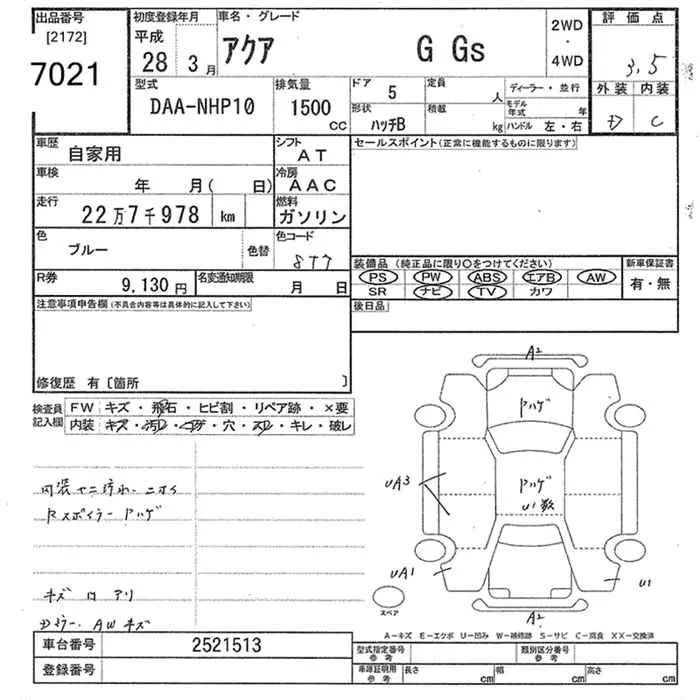 出品番号
[2172]
7021
初度登録年月
平成
28 3月
車名・グレード
アクア G Gs
2WD
・
4WD
評価点
3.5
外装 内装
D C
型式
DAA-NHP10
排気量
1500
CC
ドア
5
定員
人
ディーラー・並行
形状
ハッチB
積載
kg
モデル年式 年
ハンドル 左・右
車歴
自家用
シフト
AT
セールスポイント(正常に機能するものに限ります)
車検
年 月( 日)
冷房
AAC
走行
22万7千978 km
燃料
ガソリン
色
ブルー
色替
色コード
8T7
装備品 (純正品に限り○をつけてください)
新車保証書
PS PW ABS エアB AW
SR ナビ TV カワ
有・無
R券
9,130円
名変通知期限
月 日
後日品
注意事項申告欄(不具合内容等は具体的に記入して下さい)
修復歴 有〔箇所 〕
検査員
記入欄
FW キズ・飛石・ヒビ割・リペア跡・×要
内装 キズ・汚レ・コゲ・穴・スレ・キレ・破レ
A2
ハゲ
ハゲ
U1数
UA3
UA1
U1
A2
スペア
内装ヤニ汚れ.ニオイ
Rスポイラー ハゲ
キズ 凹 アリ
AW キズ
A−キズ E−エクボ U−凹み W−補修跡 S−サビ C−腐食 XX−交換済
車台番号
2521513
登録番号
型式指定番号
参考
類別区分番号
参考
車庫証明用
参考
長さ cm
幅 cm
高さ cm